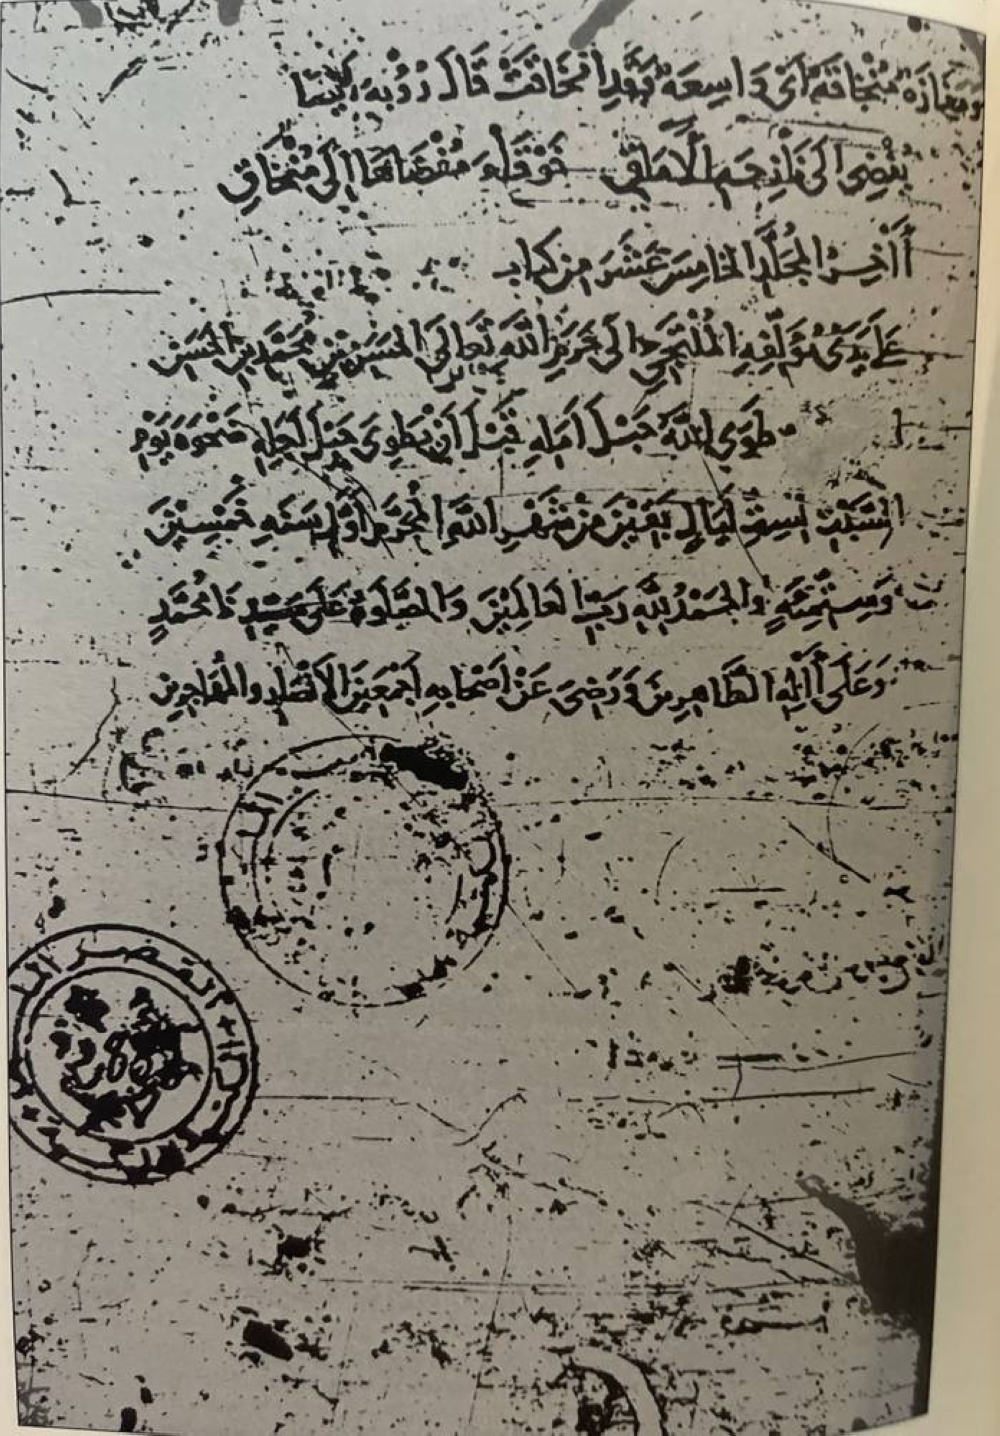 ومفازة منخاقة أي واسعة وقد انخاقت قال رؤبة أيضا
يفضي إلى نازحة الأماق خوقاء مفضاها إلى منخاق
أآخر المجلد الخامس عشر من كتاب
على يدي مؤلفه الملتجئ إلى حرم الله تعالى الحسن بن محمد بن الحسن
طوى الله حبل أمله قبل أن يطوي حبل أجله ضحوة يوم
السبت لست ليال بقين من شهر الله المحرم أول سنة خمسين
وستمئة والحمد لله رب العالمين والصلوة على سيدنا محمد
وعلى أآله الطاهرين ورضي عن أصحابه أجمعين الأنصار والمهاجرين
القصر